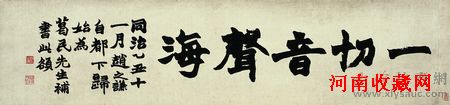 一切音聲海
同治乙丑十
一月趙之謙
自都下歸
始為
葛民先生補
書此額
河南收藏网
www.xlysauc.com